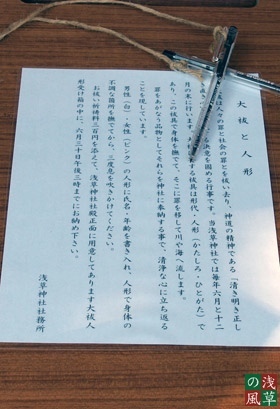 大祓と人形
は人々の罪と社会の罪とを祓い清め、神道の精神である「清き明き正し
を固める行事です。当浅草神社では毎年六月と十二
月の末に行います。
する祓具は形代・人形（かたしろ・ひとがた）で
あり、この祓具で身体を撫でて、そこに罪を移して川や海へ流します。
罪をあがなう品物としてそれらを神社に奉納する事で、清浄な心に立ち返る
ことを現しています。
男性（白）・女性（ピンク）の人形に氏名・年齢を書き入れ、人形で身体の
不調な箇所を撫でてから、三度息を吹きかけてください。
お祓い祈祷料三百円を添えて、浅草神社社殿正面に用意してあります大祓人
形受け箱の中に、六月三十日午後三時までにお納め下さい。
浅草神社社務所
浅草
の風